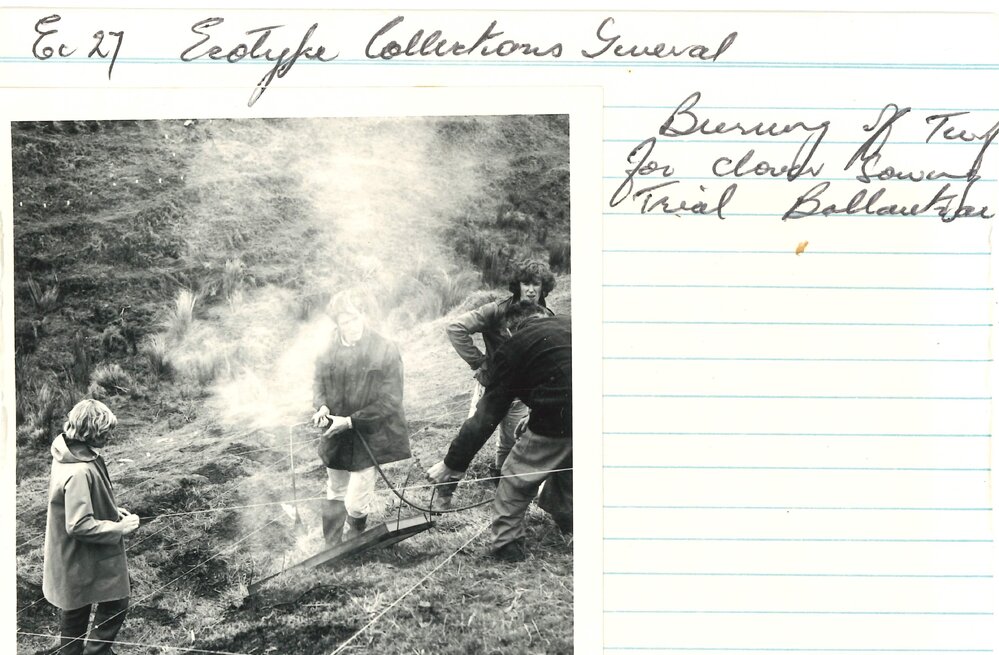 Ec 27 Ecotype Collections General
Burning of Turf
for clover Sowing
Trial